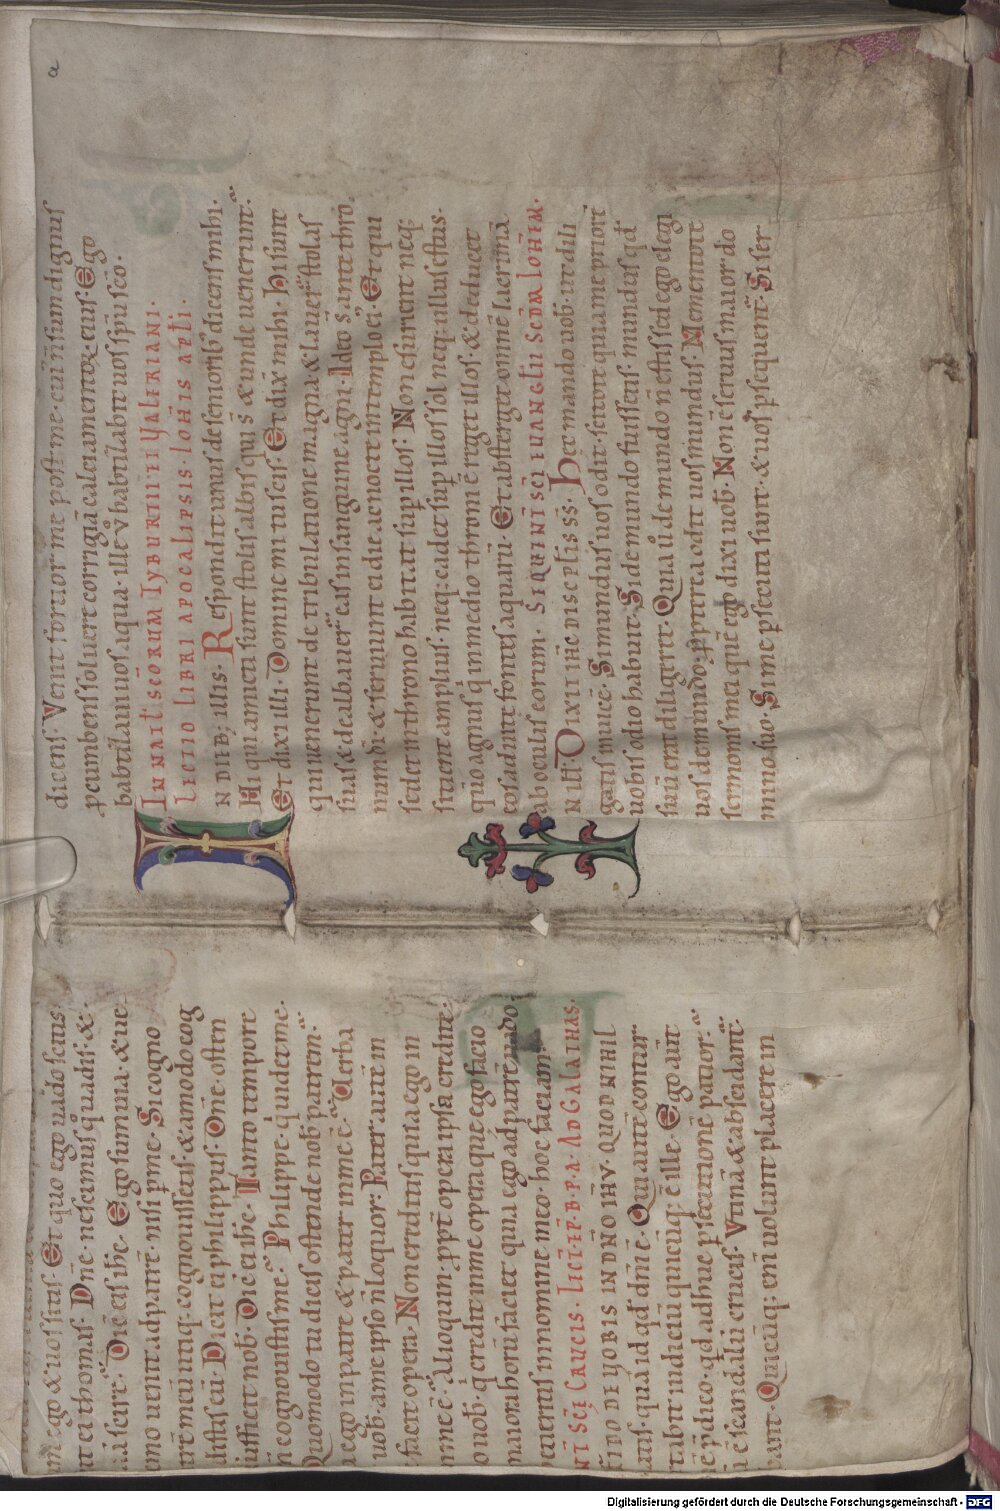 a
dicens. Venit fortior me post me. cui͞ n͞ sum dignus
p̱cumbens soluere corrigiā calciamentoꝝ eius. Ego
babtizaui uos aqua. ille ů babtizabit uos sp̄u sc̄o.
IN NAT̄ SC̄ORUM TYBURTII ET VALERIANI.
LECTIO LIBRI APOCALIPSIS. IOHIS APLI.
IN DIEB; ILLIS. Respondit unus de seniorib; dicens mihi.
Hi qui amicti sunt stolis albis qui s̄ & unde uenerunt.
Et dixi illi. Domine mi tu scis. Et dix̄ mihi. Hi sunt
qui uenerunt de tribulatione magna & lauer̄ stolas
suas & dealbauer̄ eas in sanguine agni. Ideo s̄ ante thro
num di͞ & seruiunt ei die ac nocte in templo ei͛. Et qui
sedet in throno habitat sup illos. Non esurient neq;
sitient amplius. neq; cadet sup illos sol neq; ullus estus.
qm̄ agnus q͛ in medio throni ē reget illos. & deducet
eos ad uite fontes aquarū. Et absterget d͞s omnē lacrimā
ab oculis eorum. SEQUENT̄ SC̄I EUANGLII SCDM IOHEM.
IN ILLT̄. Dixit ih̄c discplis s͛s. Hec mando uob. ut dili
gatis inuicē. Si mundus uos odit. scitote quia me priorē
uobis odio habuit. Si de mundo fuissetis. mundus qd̄
suū erat diligeret. Quia ů de mundo n̄ estis sed ego elegi
uos de mundo. ppterea odit uos mundus. Mementote
sermonis mei quē ego dixi uob. Non ē seruus maior do
mino suo. Si me psecuti sunt. & uos psequent͛. Si ser
m ego & uos sitis. Et quo ego uado scitis.
it ei thomas. Dn̄e. nescimus quo uadis. &
uiā scire. Dic̄ ei ih̄c. Ego sum uia. & ue
emo uenit ad patrē. nisi p me. Si cogno
trē meū utiq; cognouissetis. & amodo cog
idistis eū. Dicit ei philippus. Dn̄e. osten
sufficit nob. Dic̄ ei ih̄c. Tanto tempore
n̄ cognouistis me. Philippe. q͛ uidet me.
Quomodo tu dicis ostende nob patrem.
ia ego in patre & pater in me ē. Verba
uob. a me ipso n̄ loquor. Pater autē in
facit opera. Non creditis quia ego in
in me ē. Alioquin. ppt̄ opera ipsa credite.
o uob. q͛ credit in me opera que ego facio
maiora horū faciet. quia ego ad patrē uado
ieritis in nomine meo. hoc faciam.
NT̄ SC̄E CRUCIS. LEC̄ EP̄. B. P. A. AD GALATHAS.
FIDO DE UOBIS IN DNO IHV. QUOD NIHIL
etis. Qui autē contur
rtabit iudiciū quicūq; ē ille. Ego aut̄
nē pdico. qd adhuc psecutionē patior.
ū ē scandalū crucis. Vtinā & abscidant͛
bant. Quicūq; enī uolunt placere in
Digitalisierung gefördert durch die Deutsche Forschungsgemeinschaft - DFG